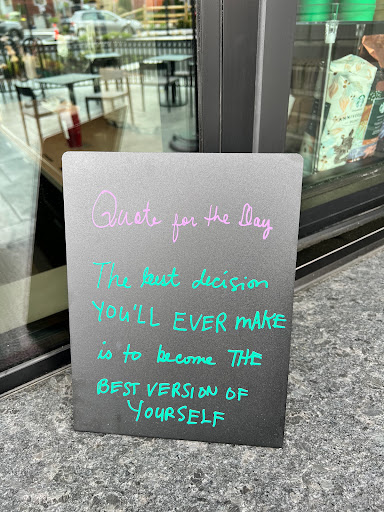 Quote for the Day
The best decision
YOU'LL EVER MAKE
is to become THE
BEST VERSION OF
YOURSELF